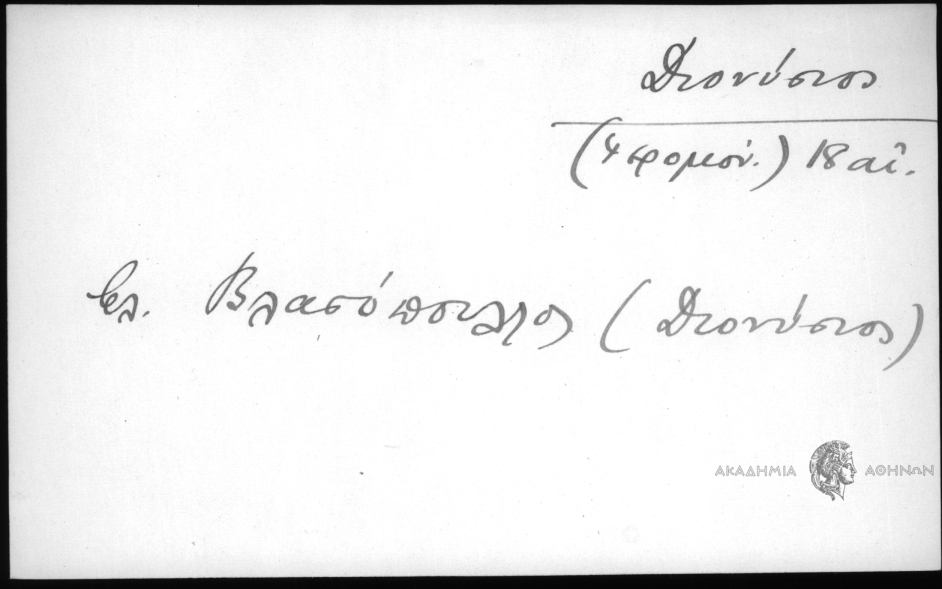 Διονύσιος
(Ἱερομόν.) 18 αἰ.
βλ. Βλασόπουλος (Διονύσιος)
ΑΚΑΔΗΜΙΑ ΑΘΗΝΩΝ